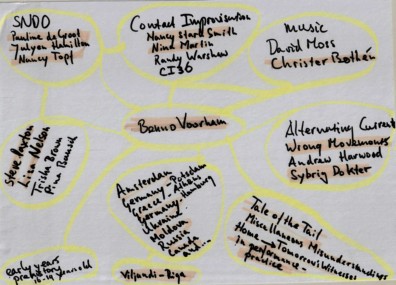 SNDO
Pauline de Groot
Julyen Hamilton
Nancy Topf
Contact Improvisation
Nancy Stark Smith
Nina Martin
Randy Warshaw
CI36
Music
David Moss
Christer Bothén
Benno Voorham
Steve Paxton
Lisa Nelson
Trisha Brown
Pina Bausch
Amsterdam
Germany - Potsdam
Greece - Athens
Germany - Hamburg
Ukraine
Moldova
Russia
Canada
and...
Alternating Current
Wrong Movements
Andrew Harwood
Sybrig Dokter
Tale of the Tail
Miscellaneous Misunderstandings
Home → Tomorrows Witnesses
in performance -
practice -
early years
prehistory
16-19 years old
Viljandi - Riga